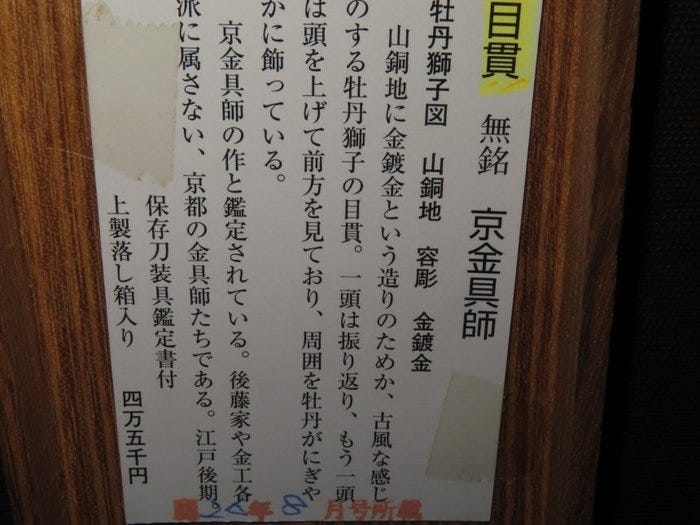 目貫　無銘　京金具師
牡丹獅子図　山銅地　容彫　金鍍金
山銅地に金鍍金という造りのためか、古風な感じ
のする牡丹獅子の目貫。一頭は振り返り、もう一頭
は頭を上げて前方を見ており、周囲を牡丹がにぎや
かに飾っている。
京金具師の作と鑑定されている。後藤家や金工各
派に属さない、京都の金具師たちである。江戸後期
保存刀装具鑑定書付
上製落し箱入り　四万五千円
年8月号所載